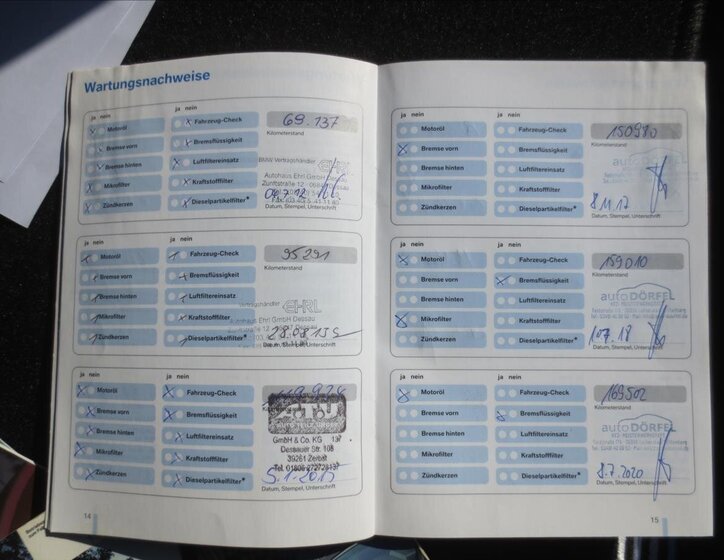 Wartungsnachweise
ja nein
ja nein
Motoröl
Fahrzeug-Check
69.137
Bremse vorn
Bremsflüssigkeit
Kilometerstand
Bremse hinten
Luftfiltereinsatz
BMW Vertragshändler
EHRL
Mikrofilter
Kraftstofffilter
Autohaus Ehrl GmbH Dessau
Zündkerzen
Dieselpartikelfilter*
Datum, Stempel, Unterschrift
ja nein
ja nein
Motoröl
Fahrzeug-Check
95291
Bremse vorn
Bremsflüssigkeit
Kilometerstand
Bremse hinten
Luftfiltereinsatz
Vertragshändler
EHRL
Mikrofilter
Kraftstofffilter
Autohaus Ehrl GmbH Dessau
Zündkerzen
Dieselpartikelfilter*
28.08.13
ja nein
ja nein
Motoröl
Fahrzeug-Check
Bremse vorn
Bremsflüssigkeit
Bremse hinten
Luftfiltereinsatz
GmbH & Co. KG 137
Mikrofilter
Kraftstofffilter
Dessauer Str. 108
39261 Zerbst
Zündkerzen
Dieselpartikelfilter*
Datum, Stempel, Unterschrift
14
ja nein
ja nein
Motoröl
Fahrzeug-Check
150910
Bremse vorn
Bremsflüssigkeit
Kilometerstand
Bremse hinten
Luftfiltereinsatz
autoDÖRFEL
Mikrofilter
Kraftstofffilter
8.11.17
Zündkerzen
Dieselpartikelfilter*
Datum, Stempel, Unterschrift
ja nein
ja nein
Motoröl
Fahrzeug-Check
159010
Bremse vorn
Bremsflüssigkeit
Kilometerstand
Bremse hinten
Luftfiltereinsatz
autoDÖRFEL
Mikrofilter
Kraftstofffilter
Zündkerzen
Dieselpartikelfilter*
Datum, Stempel, Unterschrift
ja nein
ja nein
Motoröl
Fahrzeug-Check
169502
Bremse vorn
Bremsflüssigkeit
Kilometerstand
Bremse hinten
Luftfiltereinsatz
autoDÖRFEL
Mikrofilter
Kraftstofffilter
8.7.2020
Zündkerzen
Dieselpartikelfilter*
Datum, Stempel, Unterschrift
15